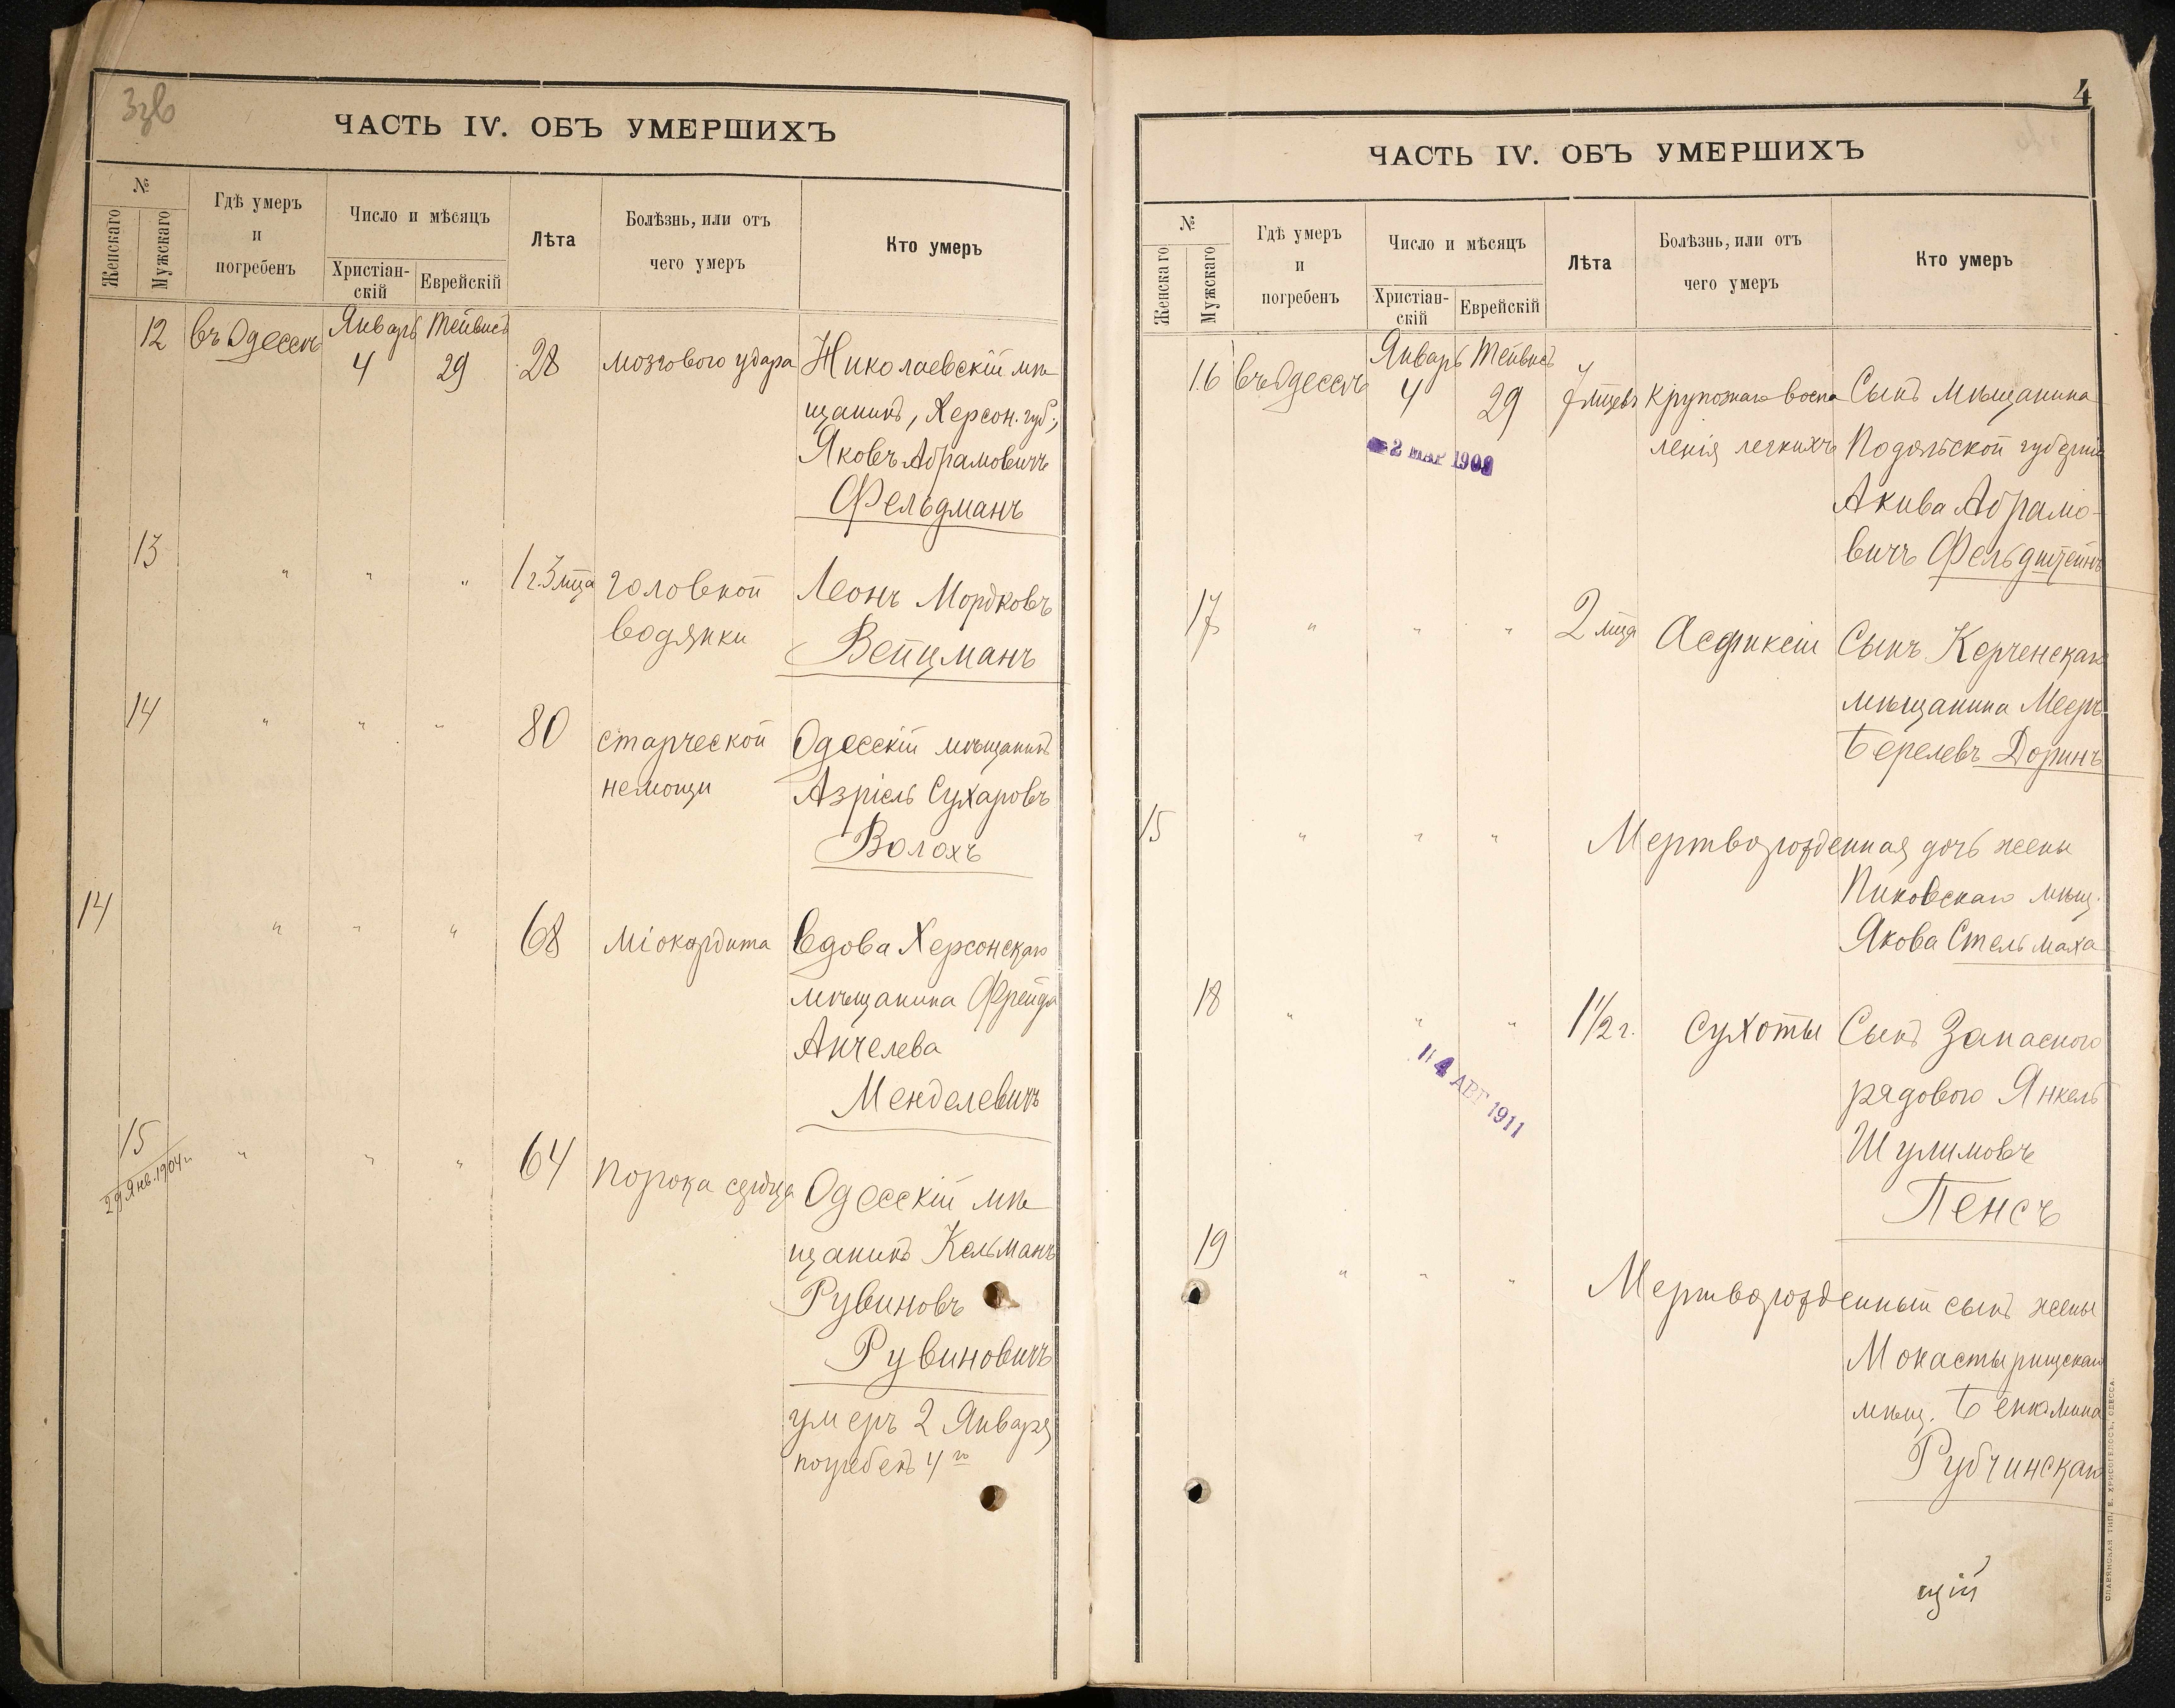 ЧАСТЬ IV. ОБЪ УМЕРШИХЪ
№
Женскаго
Мужскаго
Гдѣ умеръ
и
погребенъ
Число и мѣсяцъ
Христіан-
скій
Еврейскій
Лѣта
Болѣзнь, или отъ
чего умеръ
Кто умеръ
12 въ Одессѣ Январь Тейвисъ
4 29 28 мозгового удара Николаевскій мѣ
щанинъ, Херсон. губ.,
Яковъ Абрамовичъ
Фельдманъ
13 " " " 1 г. 3 мца головной Леонъ Мордковъ
водянки Вейцманъ
14 " " " 80 старческой Одесскій мѣщанинъ
немощи Азріель Сухаровъ
Волохъ
14 " " " 68 міокардита Вдова Херсонскаго
мѣщанина Фрейда
Анчелева
Менделевичъ
15 " " " 64 порока сердца Одесскій мѣ
29 Янв. 1904 г.
щанинъ Кельманъ
Рувиновъ
Рувиновичъ
умеръ 2 Января
погребенъ 4го
4
ЧАСТЬ IV. ОБЪ УМЕРШИХЪ
№
Женскаго
Мужскаго
Гдѣ умеръ
и
погребенъ
Число и мѣсяцъ
Христіан-
скій
Еврейскій
Лѣта
Болѣзнь, или отъ
чего умеръ
Кто умеръ
16 въ Одессѣ Январь Тейвисъ
4 29 7 мцевъ крупознаго воспа Сынъ мѣщанина
ленія легкихъ Подольской губерніи
2 МАР
Акива Абрамо-
вичъ Фельдштейнъ
17 " " " 2 мца Асфиксіи Сынъ Керченскаго
мѣщанина Мееръ
Берелевъ Доринъ
15 " " " Мертворожденная дочь жены
Пиковскаго мѣщ.
Якова Стельмаха
18 " " " 1 1/2 г. Сухоты Сынъ Запасного
4 АВГ 1911
рядового Янкель
Шулимовъ
Пенсъ
19 " " " Мертворожденный сынъ жены
Монастырищскаго
мѣщ. Бенямина
Рубчинскаго
щій
СЛАВЯНСКАЯ ТИП. Е. ХРИСОГЕЛОСЪ, ОДЕССА.